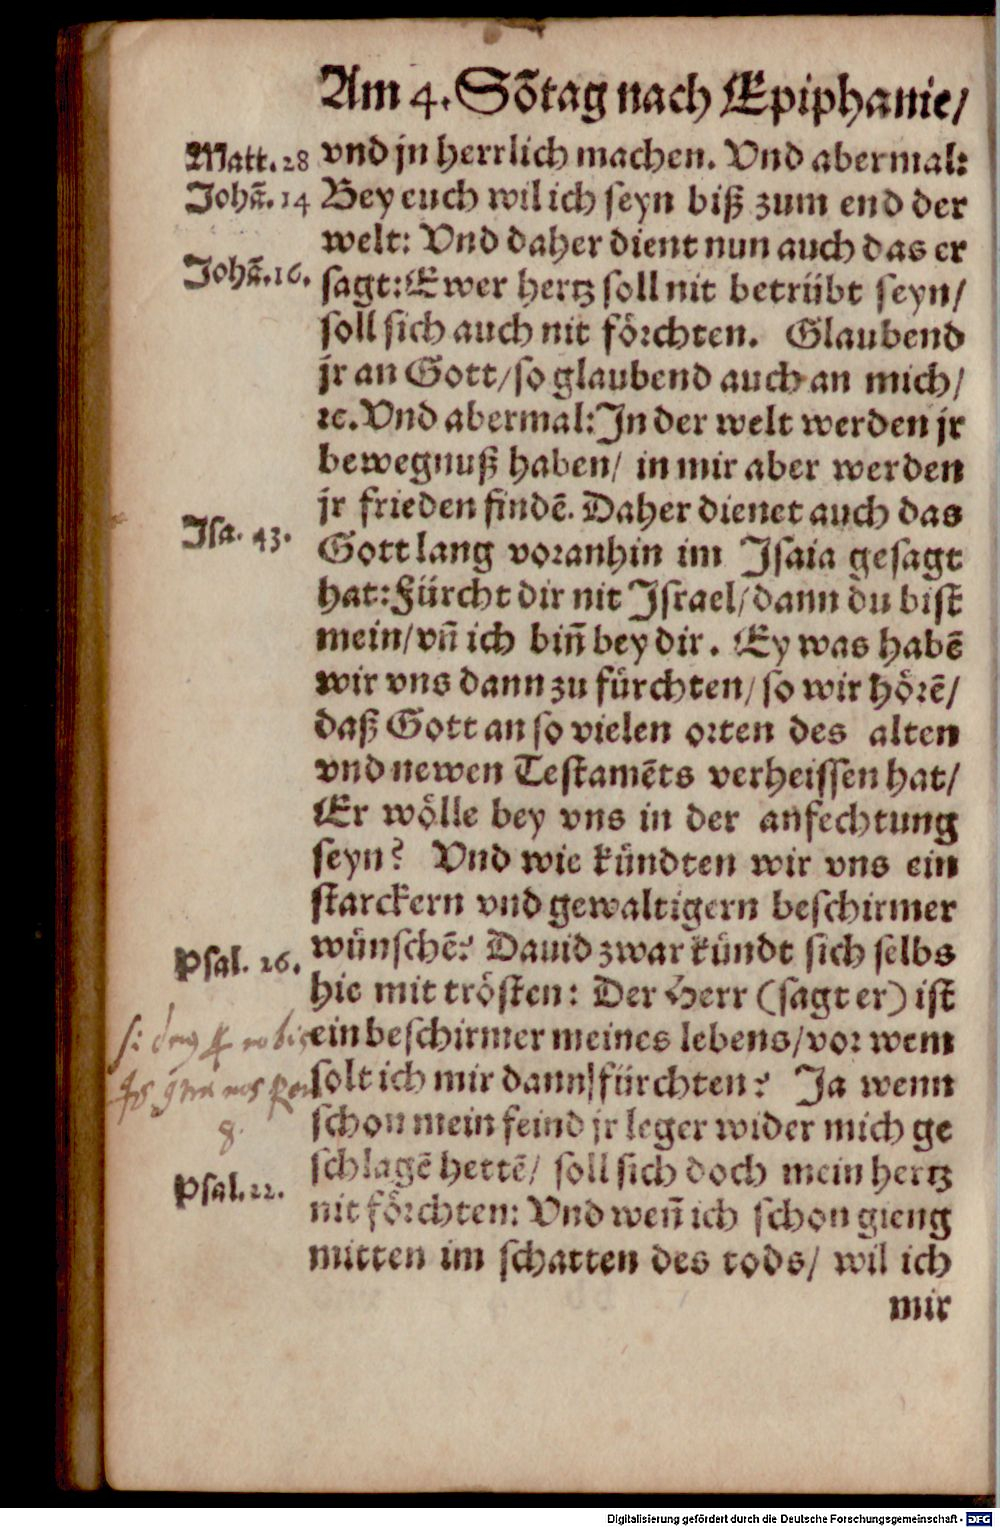 Am 4. Sõtag nach Epiphanie/
Matt. 28
Johã. 14
Johã. 16.
Isa. 43.
Psal. 26.
Psal. 22.
vnd jn herrlich machen. Vnd abermal:
Bey euch wil ich seyn biß zum end der
welt: Vnd daher dient nun auch das er
sagt: Ewer hertz soll nit betrübt seyn/
soll sich auch nit förchten. Glaubend
jr an Gott/ so glaubend auch an mich/
ꝛc. Vnd abermal: In der welt werden jr
bewegnuß haben/ in mir aber werden
jr frieden findẽ. Daher dienet auch das
Gott lang voranhin im Isaia gesagt
hat: Fürcht dir nit Israel/ dann du bist
mein/ vñ ich biñ bey dir. Ey was habẽ
wir vns dann zu fürchten/ so wir hörẽ/
daß Gott an so vielen orten des alten
vnd newen Testamẽts verheissen hat/
Er wölle bey vns in der anfechtung
seyn? Vnd wie kündten wir vns ein
starckern vnd gewaltigern beschirmer
wünschẽ? Dauid zwar kündt sich selbs
hie mit trösten: Der Herr (sagt er) ist
ein beschirmer meines lebens/ vor wem
solt ich mir dann fürchten? Ja wenn
schon mein feind jr leger wider mich ge
schlagẽ hettẽ/ soll sich doch mein hertz
nit förchten: Vnd weñ ich schon gieng
mitten im schatten des tods/ wil ich
mir
8.
Digitalisierung gefördert durch die Deutsche Forschungsgemeinschaft - DFG